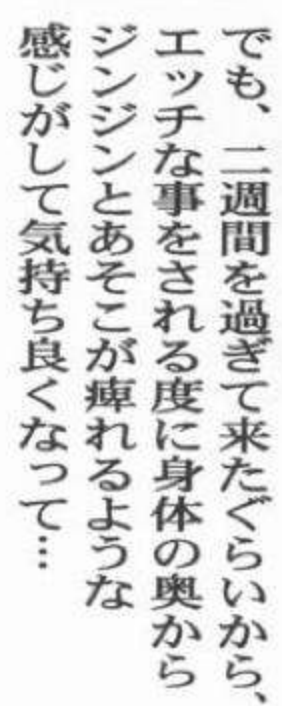 でも、二週間を過ぎて来たぐらいから、
エッチな事をされる度に身体の奥から
ジンジンとあそこが痺れるような
感じがして気持ち良くなって…